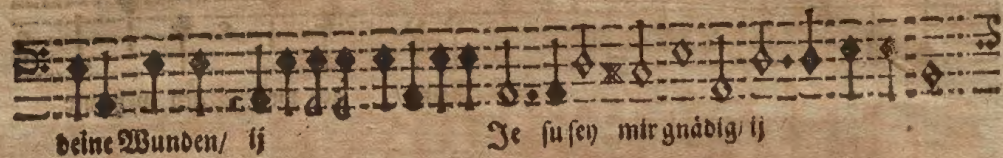 deine Wunden/ ij Je su sey mir gnädig/ ij